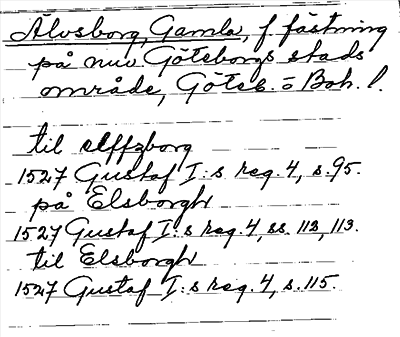 Älvsborg, Gamla, f. fästning
på nuv Göteborgs stads
område, Göteb. o Boh. l.
til elffzborg
1527 Gustaf I:s reg. 4, s. 95.
på Elsborgh
1527 Gustaf I:s reg. 4, ss. 112, 113.
til Elsborgh
1527 Gustaf I:s reg. 4, s. 115.